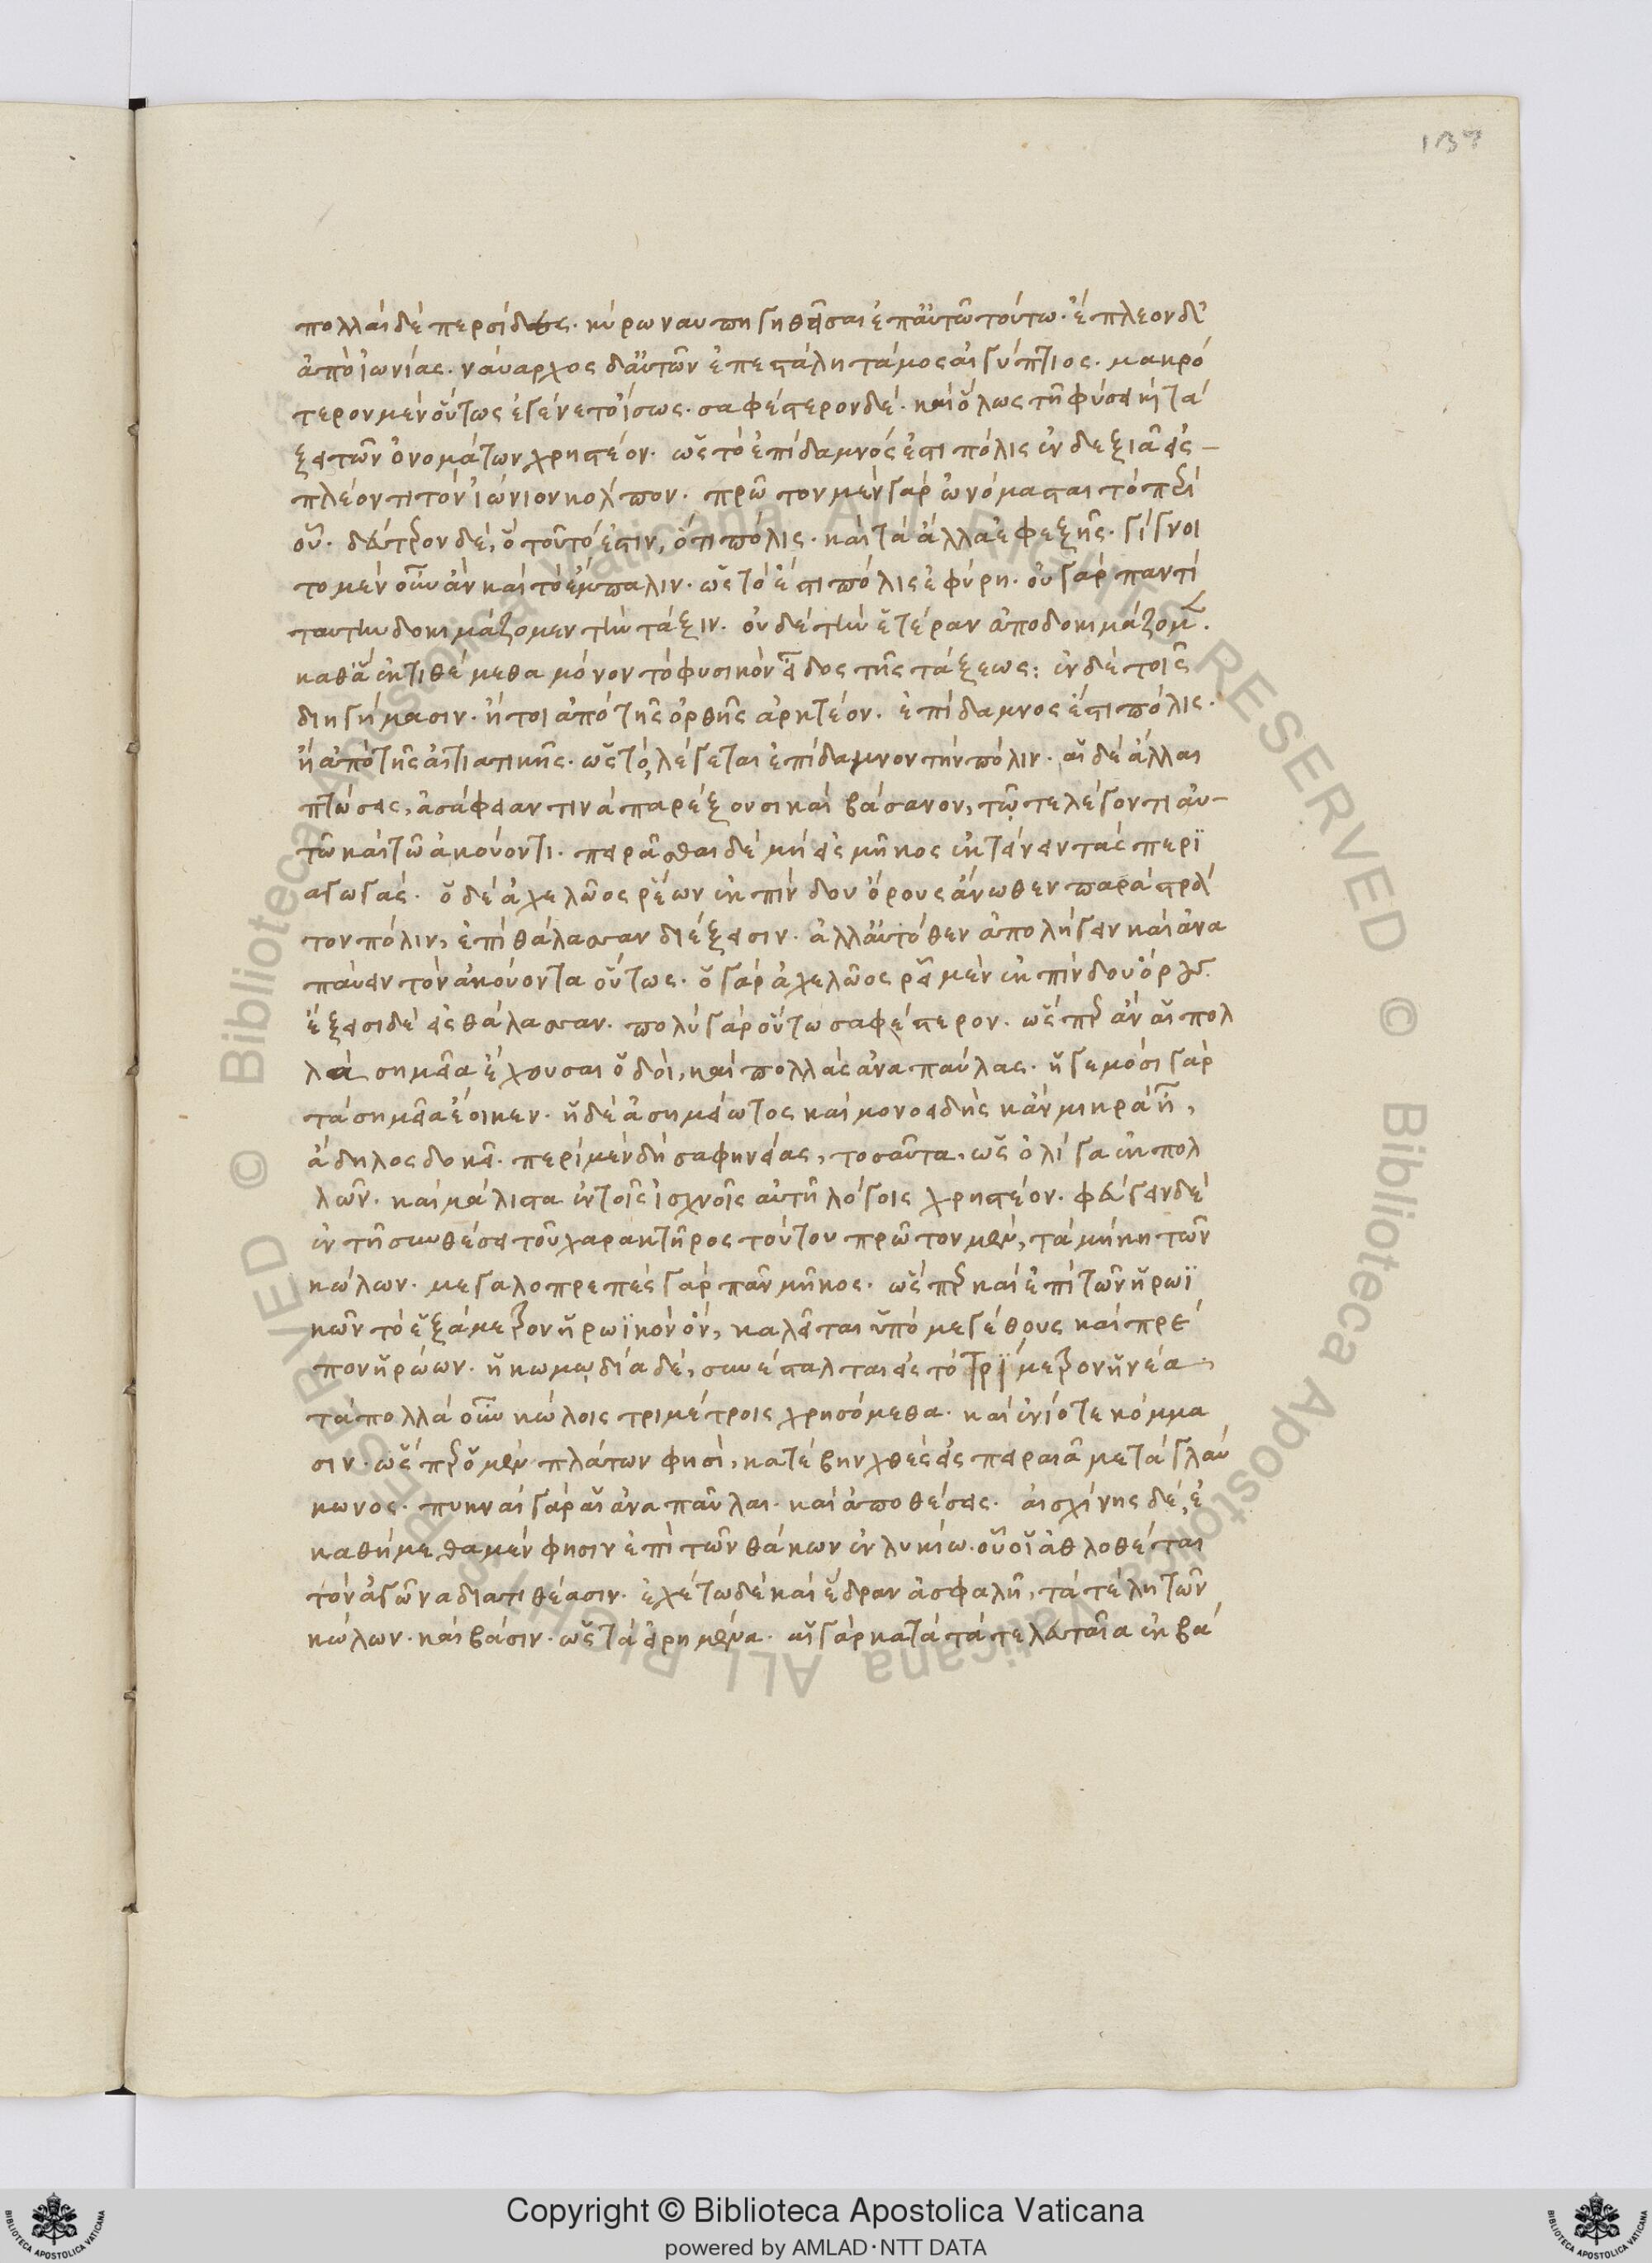 137
πολλαὶ δὲ περσίδες. κύρω ναυπηγηθεῖσαι ἐπ' αὐτῶ τούτω. ἔπλεον δ'
ἀπὸ ἰωνίας. ναύαρχος δ' αὐτῶν ἐπεστάλη ταμὸς αἰγύπτιος. μακρό
τερον μὲν οὕτως ἐγένετο ἴσως. σαφέστερον δέ. καὶ ὅλως τῆ φύσει κὴ τά
ξει τῶν ὀνομάτων χρηστέον. ὡς τὸ ἐπίδαμνός ἐστι πόλις ἐν δεξιᾶ εἰς
πλέοντι τὸν ἰώνιον κόλπον. πρῶτον μὲν γὰρ ὠνόμασται τὸ περὶ
οὗ. δεύτερον δὲ, ὃ τοῦτό ἐστιν, ὅτι πόλις. καὶ τὰ ἄλλα ἐφεξῆς. γίγνοι
το μὲν οὖν ἂν καὶ τὸ ἔμπαλιν. ὡς τὸ ἔστι πόλις ἐφύρη. οὐ γὰρ παντὶ
ταύτην δοκιμάζομεν τὴν τάξιν. οὐδὲ τὴν ἑτέραν ἀποδοκιμάζομεν.
καθὰ ἐκτιθέμεθα μόνον τὸ φυσικὸν εἶδος τῆς τάξεως: ἐν δὲ τοῖς
διηγήμασιν. ἤτοι ἀπὸ τῆς ὀρθῆς ἀρκτέον. ἐπίδαμνος ἔστι πόλις.
ἢ ἀπὸ τῆς αἰτιατικῆς. ὡς τὸ, λέγεται ἐπίδαμνον τὴν πόλιν. αἱ δὲ ἄλλαι
πτώσεις, ἀσάφειάν τινα παρέξουσι καὶ βάσανον, τῷ τε λέγοντι αὐ-
τῶ καὶ τῶ ἀκούοντι. πειρᾶσθαι δὲ μὴ εἰς μῆκος ἐκτείνειν τὰς περι
αγωγάς. ὁ δὲ ἀχελῶος ῥέων ἐκ πίνδου ὄρους ἄνωθεν παρὰ στρά
τον πόλιν, ἐπὶ θάλασσαν διέξεισιν. ἀλλ' αὐτόθεν ἀπολήγειν καὶ ἀνα
παύειν τὸν ἀκούοντα οὕτως. ὁ γὰρ ἀχελῶος ῥεῖ μὲν ἐκ πίνδου ὄρους.
ἔξεισι δὲ εἰς θάλασσαν. πολὺ γὰρ οὕτω σαφέστερον. ὥσπερ ἂν αἱ πολ
λὰ σημεῖα ἔχουσαι ὁδοὶ, καὶ πολλὰς ἀναπαύλας. ἡγεμόσι γὰρ
τὰ σημεῖα ἔοικεν. ἡ δὲ ἀσημείωτος καὶ μονοειδὴς κἂν μικρὰ ἦ,
ἄδηλος δοκεῖ. περὶ μὲν δὴ σαφηνείας, τοσαῦτα, ὡς ὀλίγα ἐκ πολ
λῶν. καὶ μάλιστα ἐν τοῖς ἰσχνοῖς αὐτῆ λόγοις χρηστέον. φεύγειν δὲ
ἐν τῆ συνθέσει τοῦ χαρακτῆρος τούτου πρῶτον μὲν, τὰ μήκη τῶν
κώλων. μεγαλοπρεπὲς γὰρ πᾶν μῆκος. ὥσπερ καὶ ἐπὶ τῶν ἡρωϊ
κῶν τὸ ἑξάμετρον ἡρωϊκὸν ὂν, καλεῖται ὑπὸ μεγέθους καὶ πρέ
πον ἡρώων. ἡ κωμῳδία δὲ, συνέσταλται εἰς τὸ τρίμετρον ἡ νέα.
τὰ πολλὰ οὖν κώλοις τριμέτροις χρησόμεθα. καὶ ἐνίοτε κόμμα
σιν. ὥσπερ ὁ μὲν πλάτων φησὶ, κατέβην χθὲς εἰς πειραιᾶ μετὰ γλαύ
κωνος. πυκναὶ γὰρ αἱ ἀνάπαυλαι. καὶ ἀποθέσεις. αἰσχίνης δὲ, ἐ
καθήμεθα μὲν φησὶν ἐπὶ τῶν θάκων ἐν λυκίω. οὗ οἱ ἀθλοθέται
τὸν ἀγῶνα διατιθέασιν. ἐχέτω δὲ καὶ ἕδραν ἀσφαλῆ, τὰ τέλη τῶν
κώλων. καὶ βάσιν. ὡς τὰ εἰρημένα. αἱ γὰρ κατὰ τὰ τελευταῖα ἐκβά
Copyright © Biblioteca Apostolica Vaticana
powered by AMLAD·NTT DATA